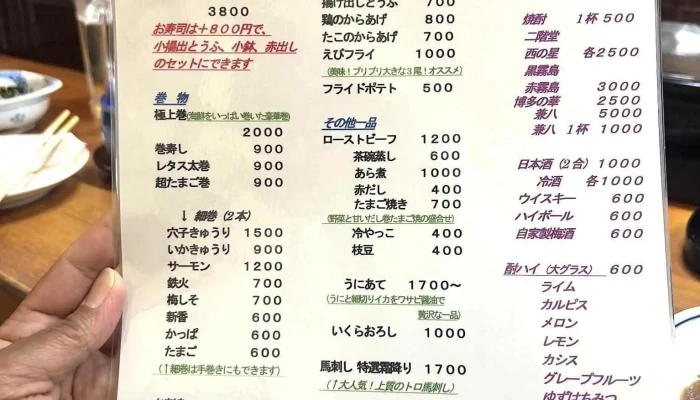 3800
お寿司は＋８００円で、
小揚出とうふ、小鉢、赤出し
のセットにできます
巻 物
極上巻(海鮮をいっぱい巻いた豪華巻)
2000
巻寿し 900
レタス太巻 900
超たまご巻 900
↓ 細巻（2本）
穴子きゅうり 1500
いかきゅうり 900
サーモン 1200
鉄火 700
梅しそ 700
新香 600
かっぱ 600
たまご 600
(↑細巻は手巻きにもできます)
揚げ出しとうふ 700
鶏のからあげ 800
たこのからあげ 700
えびフライ 1000
(美味！プリプリ大きな３尾！オススメ)
フライドポテト 500
その他一品
ローストビーフ 1200
茶碗蒸し 600
あら煮 1000
赤だし 400
たまご焼き 700
(野菜と甘いだし巻たまご焼の盛合せ)
冷やっこ 400
枝豆 400
うにあて 1700～
(うにと細切りイカをワサビ醤油で
贅沢な一品)
いくらおろし 1000
馬刺し 特選霜降り 1700
(↑大人気！上質のトロ馬刺し)
焼酎 1杯 500
二階堂
西の星 各2500
黒霧島
赤霧島 3000
博多の華 2500
兼八 5000
兼八 1杯 1000
日本酒(2合) 1000
冷酒 各1000
ウイスキー 600
ハイボール 600
自家製梅酒 600
酎ハイ (大グラス) 600
ライム
カルピス
メロン
レモン
カシス
グレープフルーツ
ゆずはちみつ